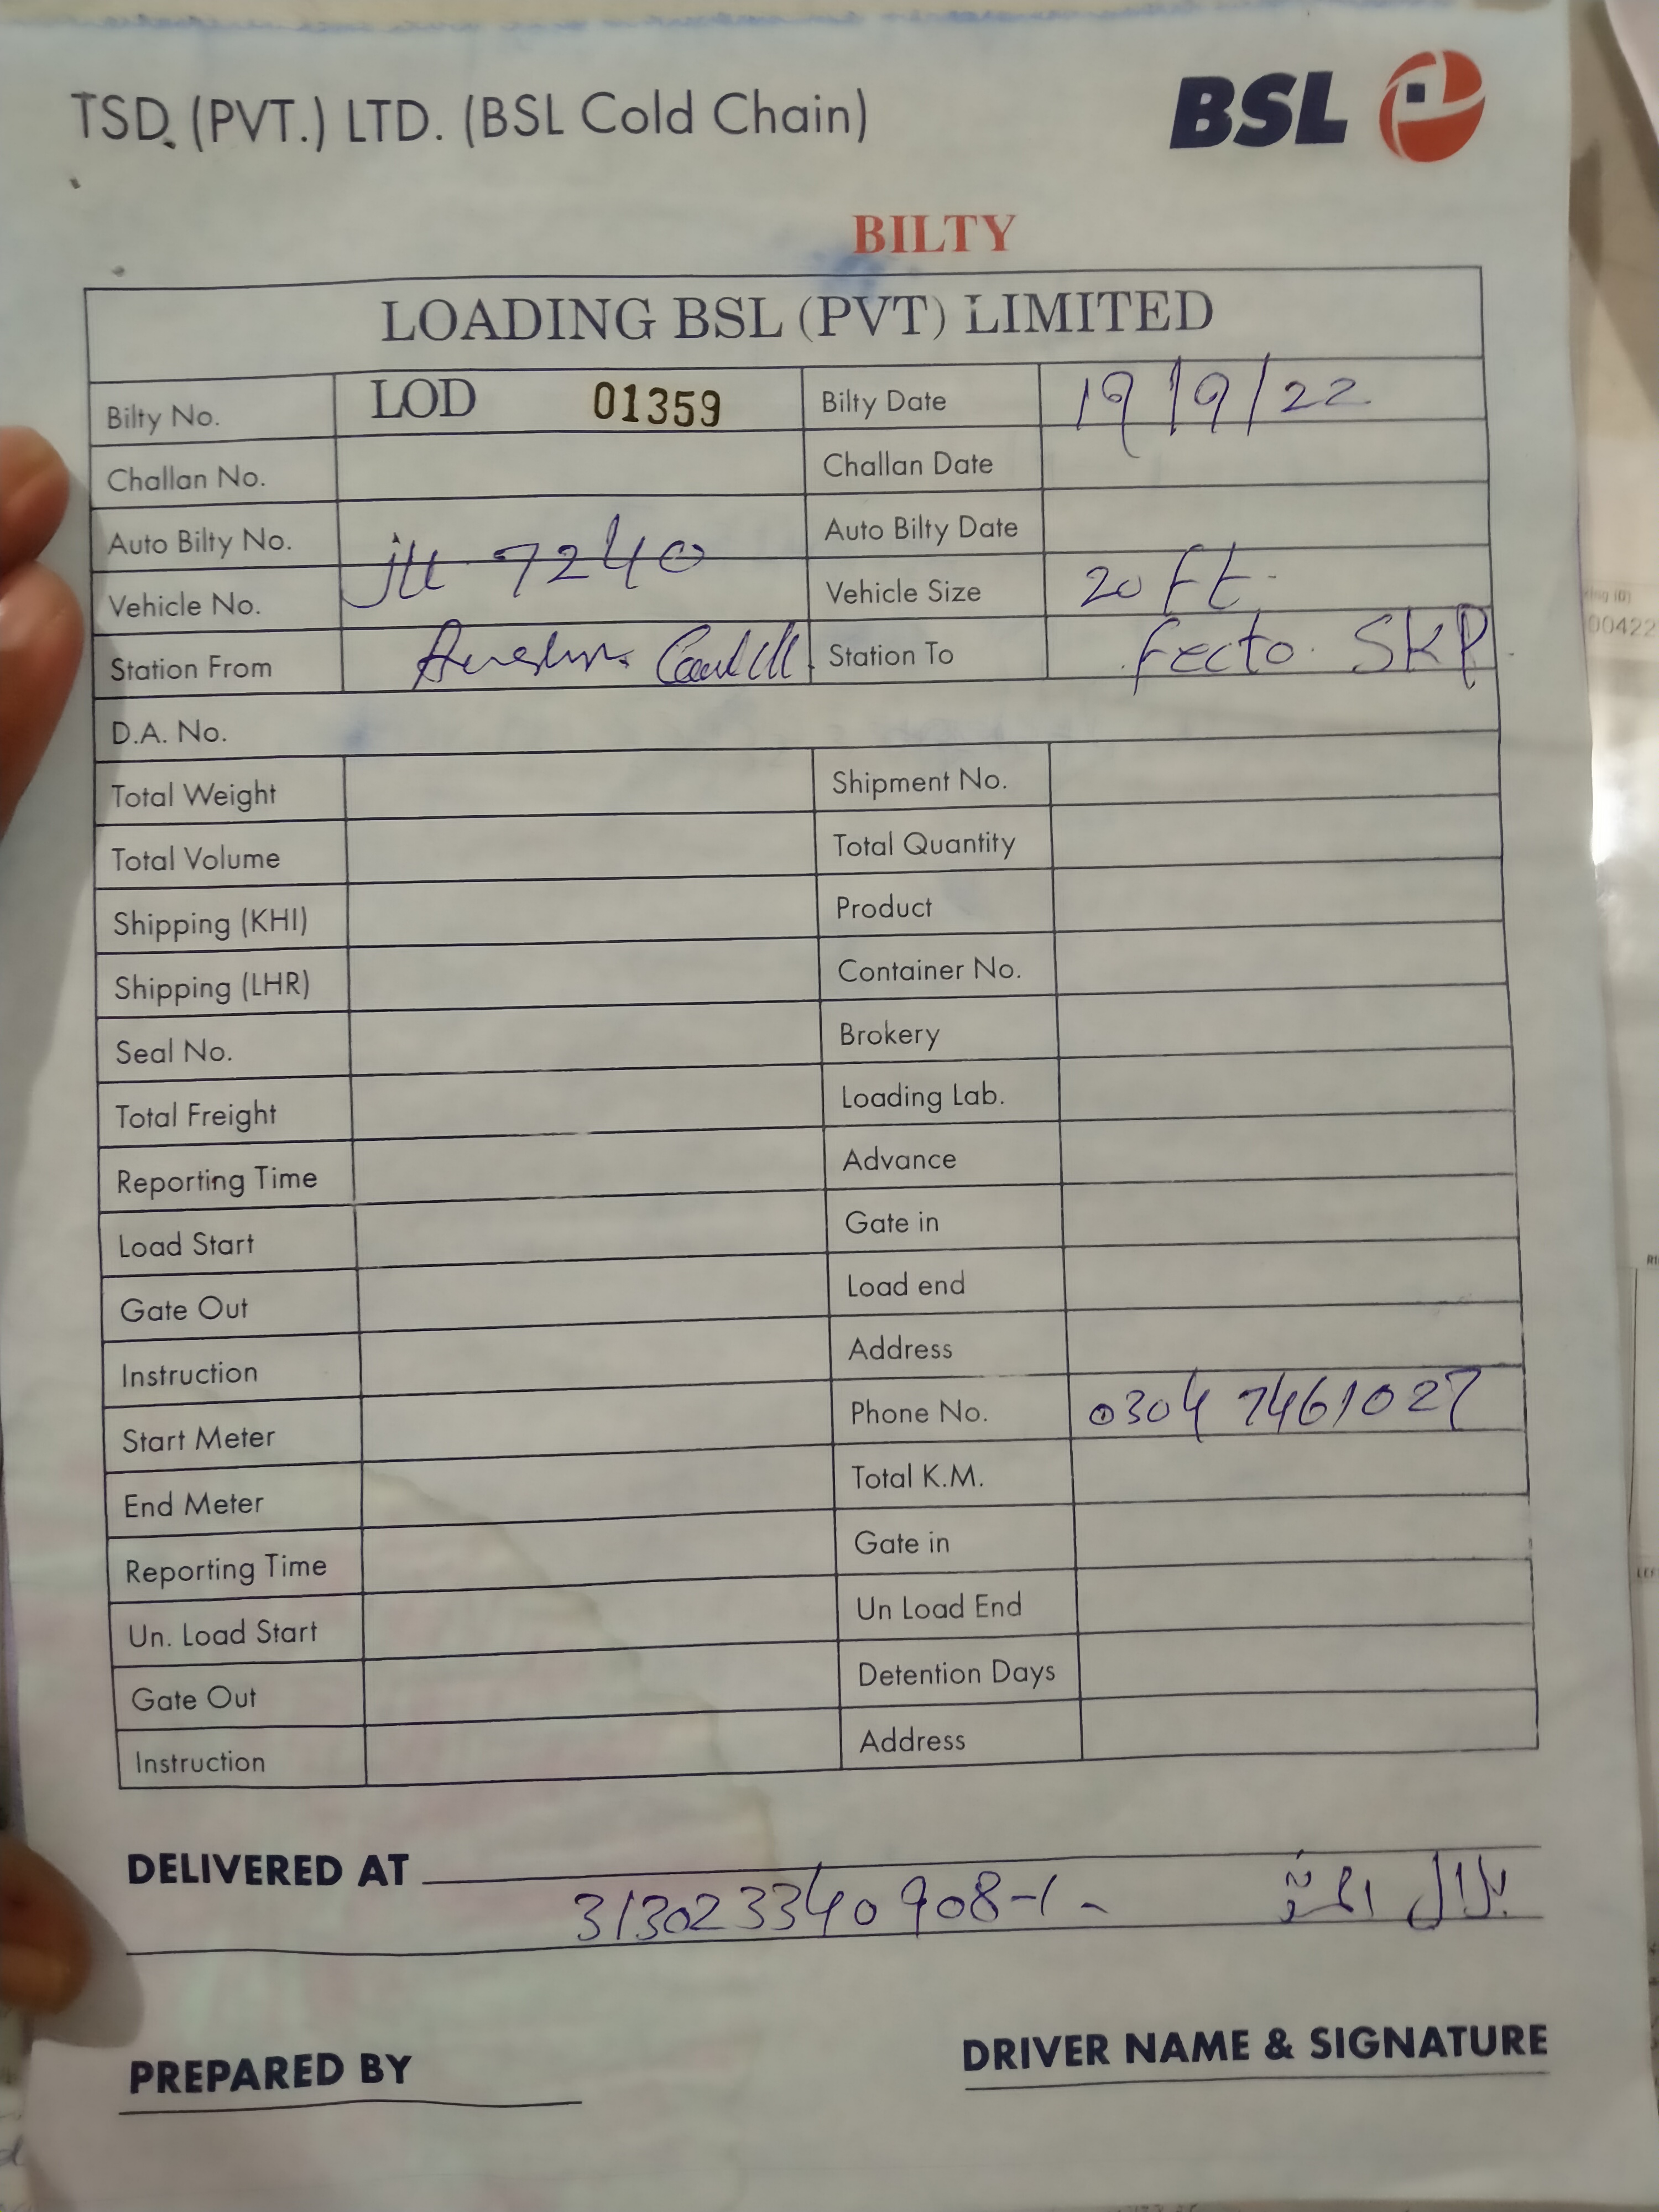 TSD. (PVT.) LTD. (BSL Cold Chain)
BSL
BILTY
LOADING BSL (PVT) LIMITED
Bilty No. LOD 01359 Bilty Date 19/9/22
Challan No. Challan Date
Auto Bilty No. Auto Bilty Date
Vehicle No. 7240 Vehicle Size 20 ft.
Station From Station To Fecto SKP
D.A. No.
Total Weight Shipment No.
Total Volume Total Quantity
Shipping (KHI) Product
Shipping (LHR) Container No.
Seal No. Brokery
Total Freight Loading Lab.
Reporting Time Advance
Load Start Gate in
Gate Out Load end
Instruction Address
Start Meter Phone No. 0304 7461027
End Meter Total K.M.
Reporting Time Gate in
Un. Load Start Un Load End
Gate Out Detention Days
Instruction Address
DELIVERED AT
313023340908-1 بلال
PREPARED BY
DRIVER NAME & SIGNATURE